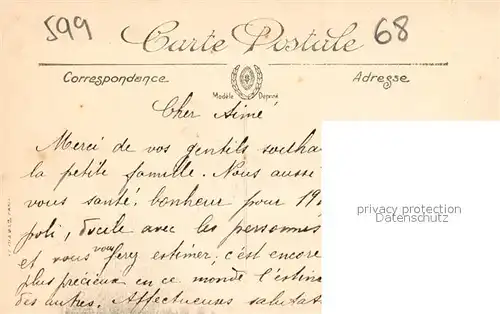 599
68
Carte Postale
Correspondance
Adresse
Modèle Déposé
Cher Aimé
Merci de vos gentils souha
la petite famille. Nous aussi
vous santé, bonheur pour 19
poli, docile avec les personnes
et vous vous ferez estimer, c'est encore
plus précieux en ce monde l'estime
des autres. Affectueuses salutat
privacy protection
Datenschutz